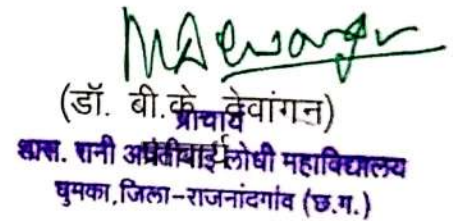 (डॉ. बी.के. देवांगन)
प्राचार्य
शास. रानी अवंतीबाई लोधी महाविद्यालय
घुमका, जिला-राजनांदगांव (छ.ग.)